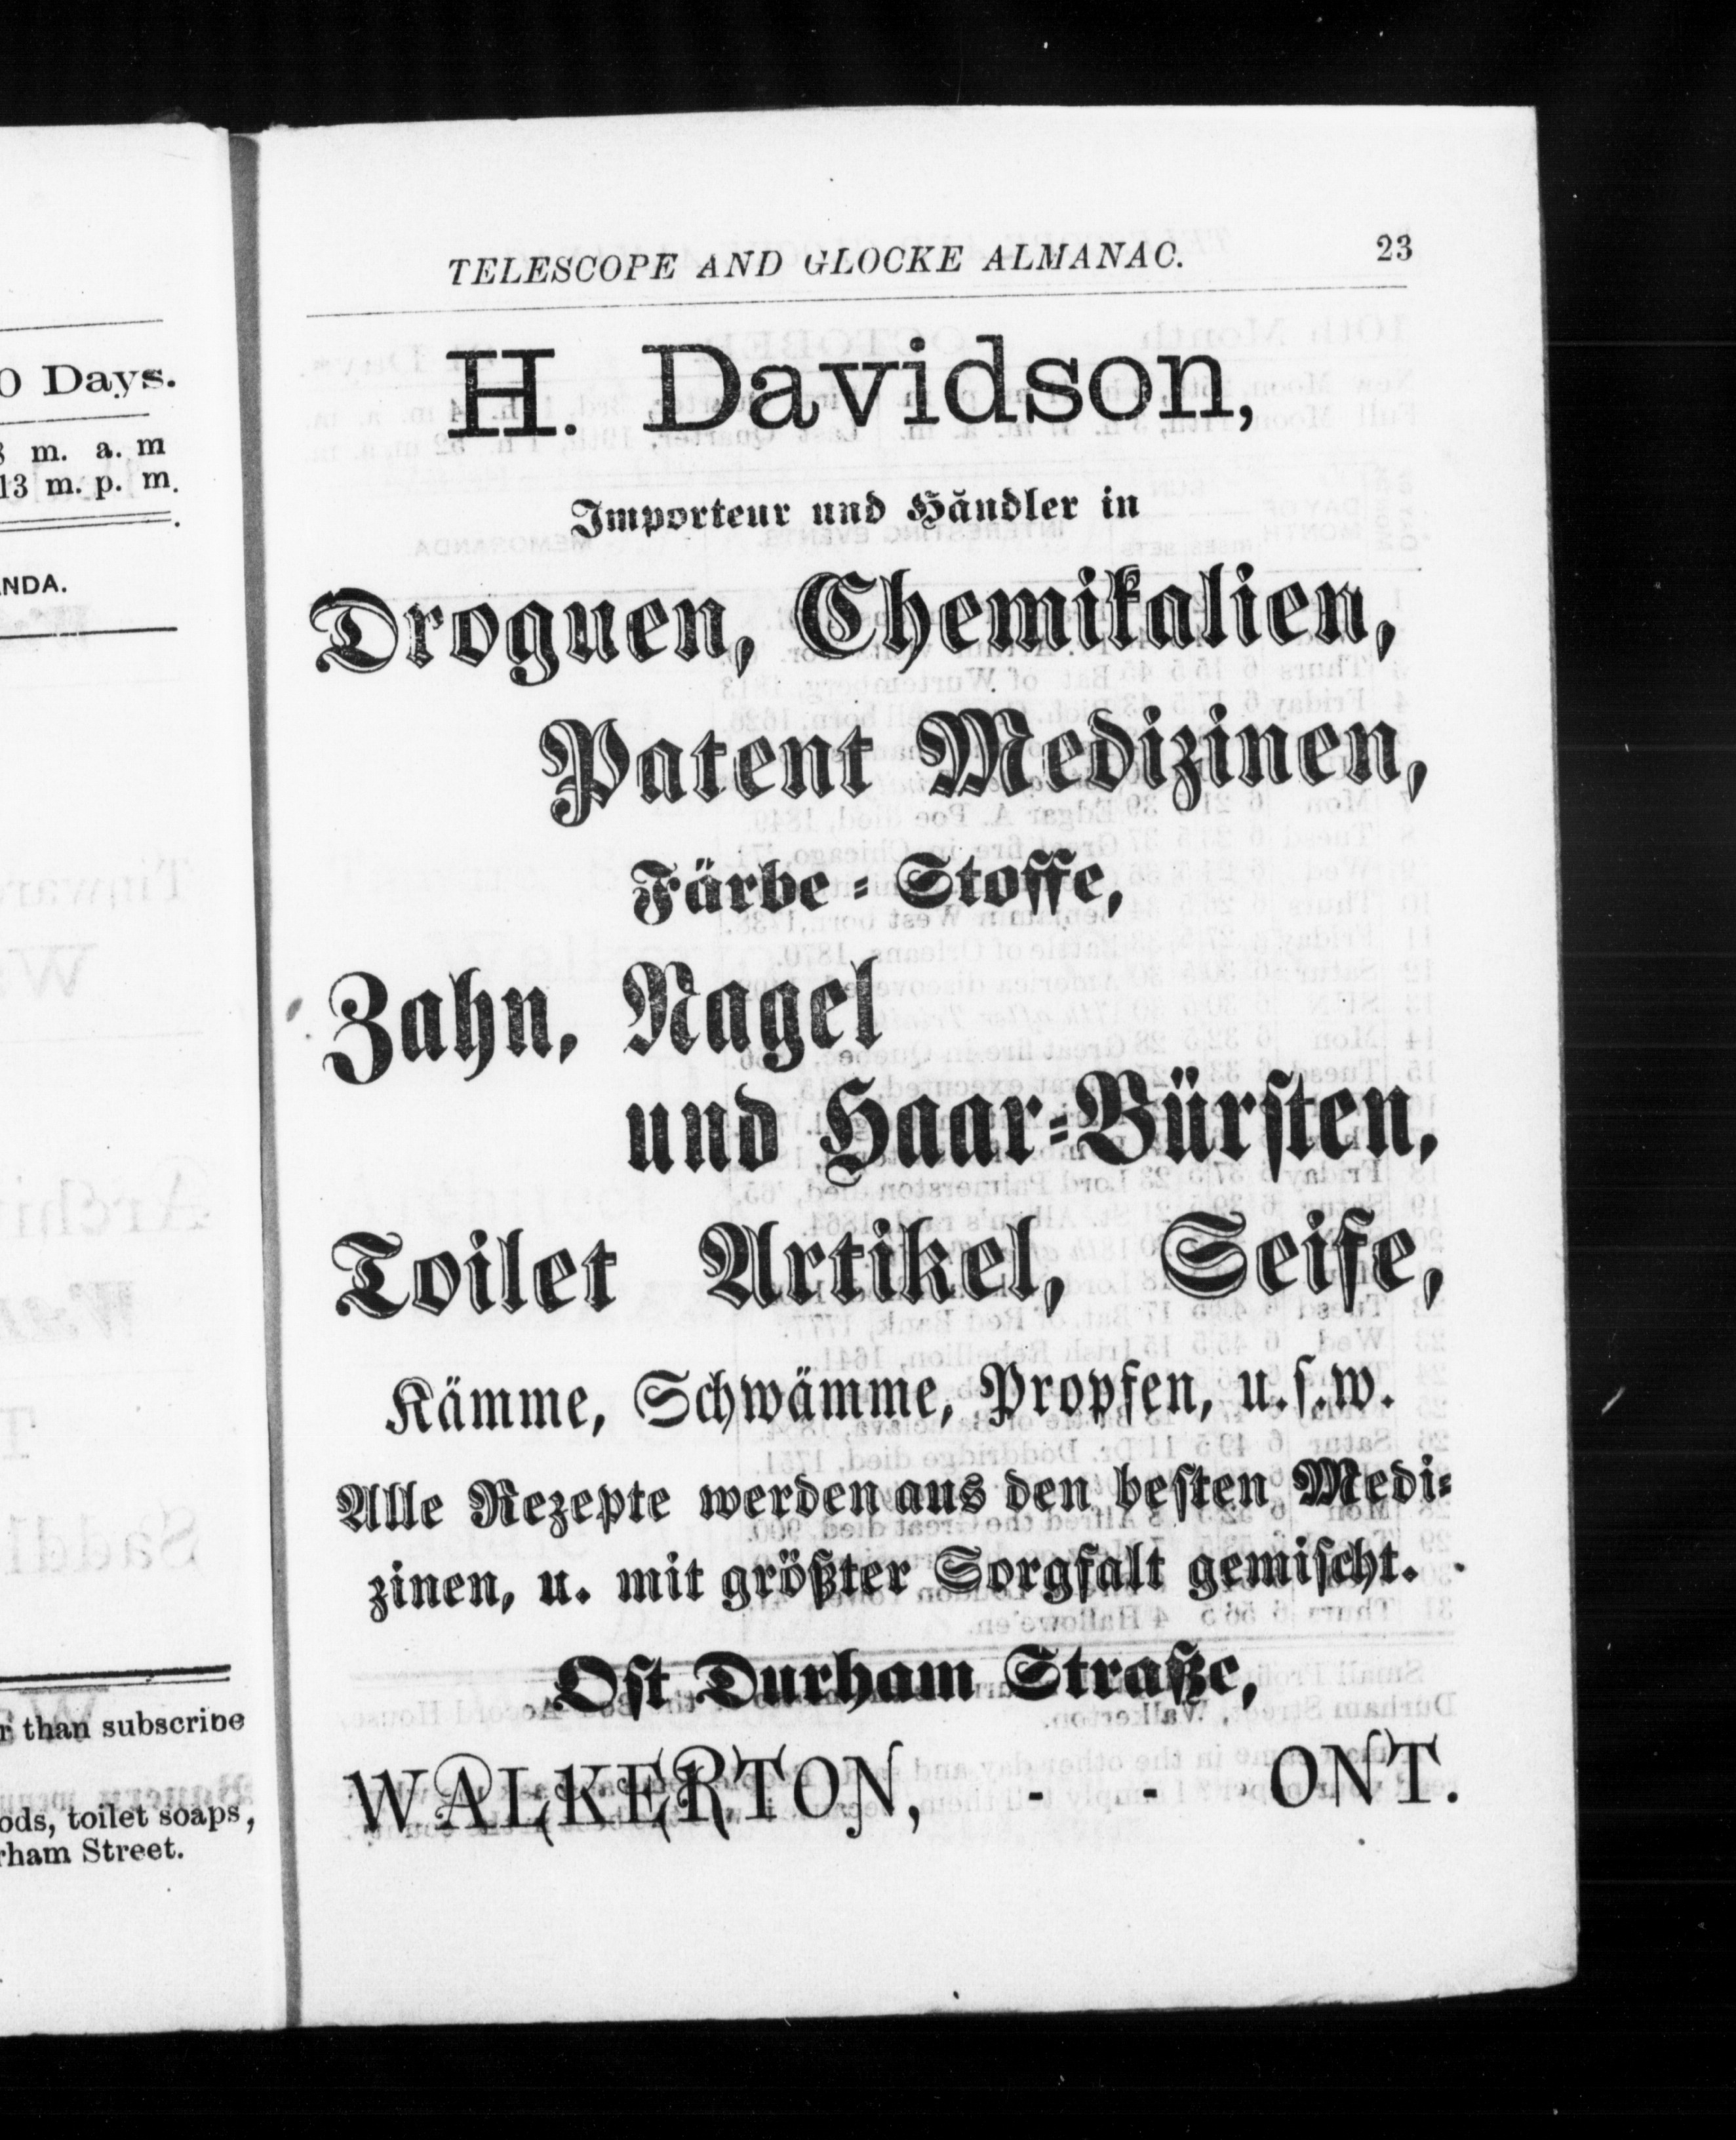 0 Days.
m. a. m
13 m. p. m.
NDA.
r than subscribe
ods, toilet soaps,
rham Street.
TELESCOPE AND GLOCKE ALMANAC. 23
H. Davidson,
Importeur und Händler in
Droguen, Chemikalien,
Patent Medizinen,
Färbe-Stoffe,
Zahn, Nagel
und Haar-Bürsten,
Toilet Artikel, Seife,
Kämme, Schwämme, Propfen, u.s.w.
Alle Rezepte werden aus den besten Medi-
zinen, u. mit größter Sorgfalt gemischt.
Ost Durham Straße,
WALKERTON, - - ONT.